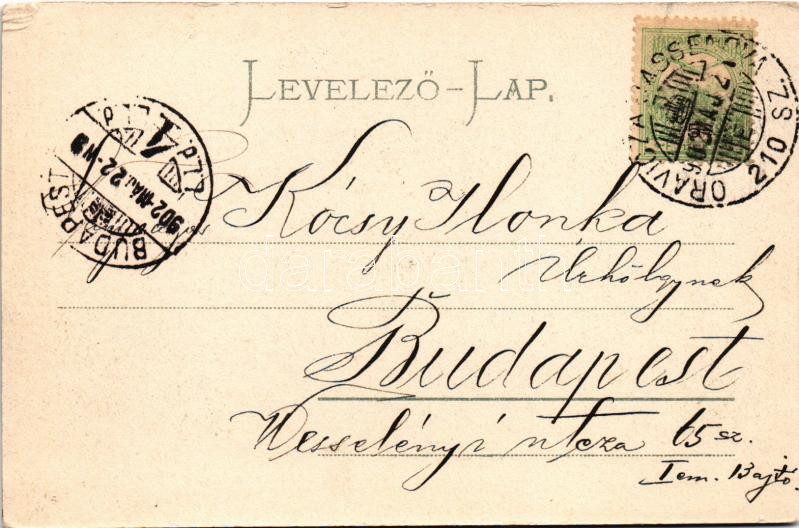 LEVELEZŐ-LAP.
ORAVICZA
210 SZ.
BUDAPEST
902 MÁJ 22
4
Kócsy Ilonka
Úrhölgynek
Budapest
Wesselényi utcza 65 sz.
I em. Bajtó.
darabanth